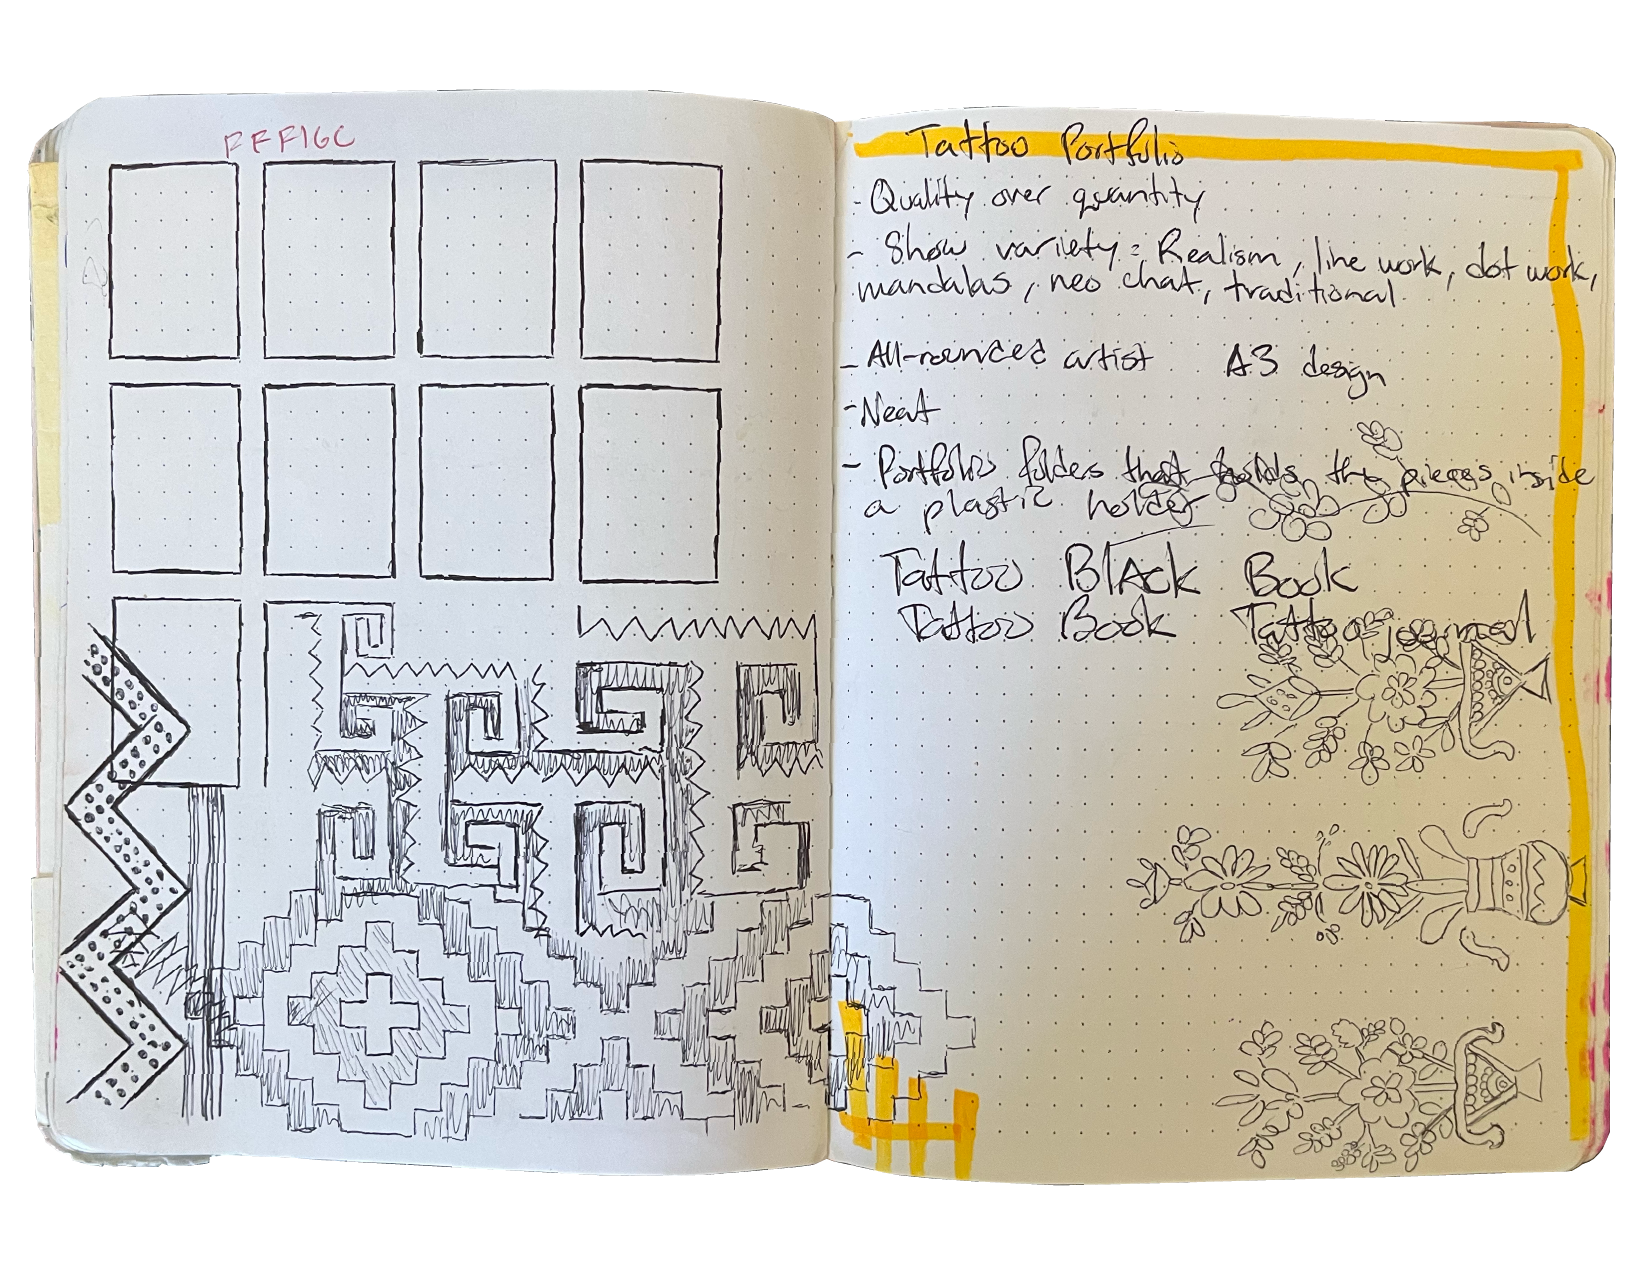 FFF16C
Tattoo Portfolio
- Quality over quantity
- Show variety : Realism, line work, dot work,
mandalas, neo chat, traditional
- All-rounded artist A3 design
- Neat
- Portfolio folders that holds the pieces inside
a plastic holder
Tattoo BlAck Book
Tattoo Book Tattoo journal